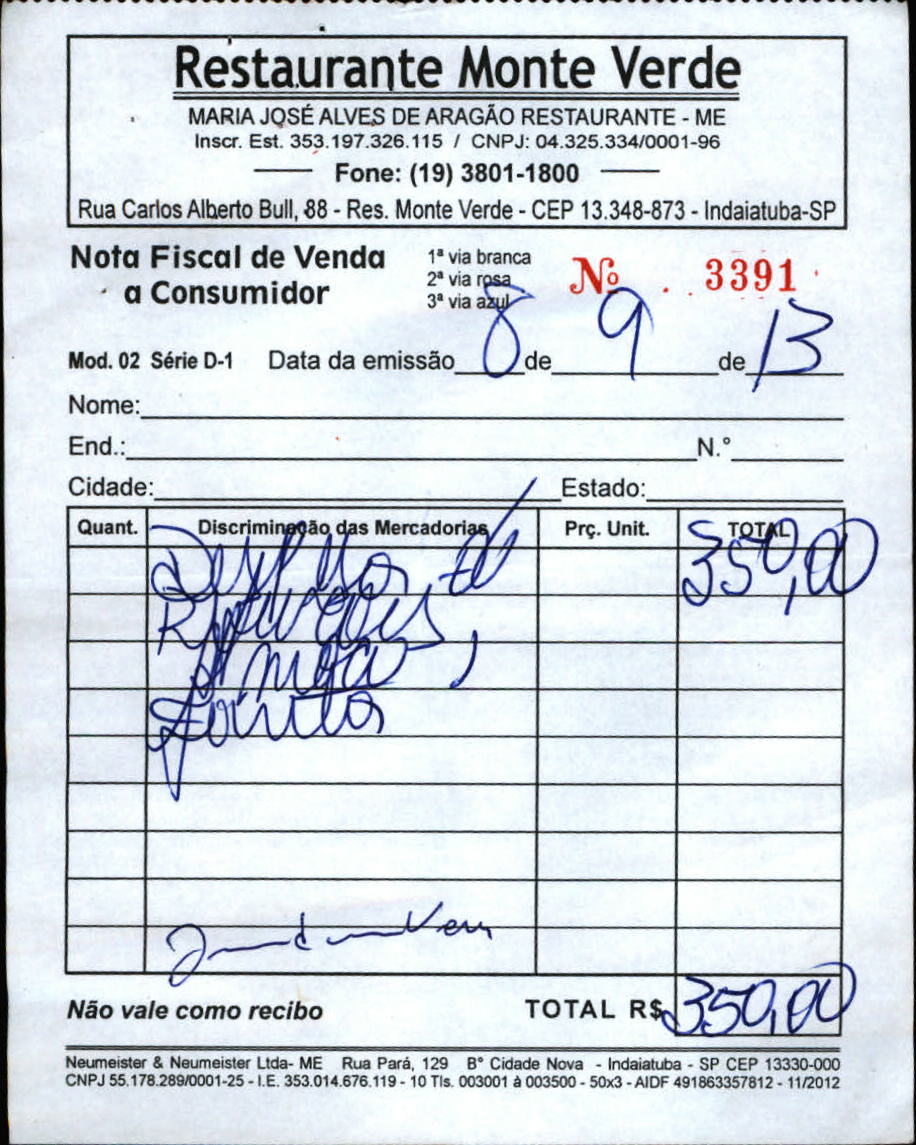 Restaurante Monte Verde
MARIA JOSÉ ALVES DE ARAGÃO RESTAURANTE - ME
Inscr. Est. 353.197.326.115 / CNPJ: 04.325.334/0001-96
Fone: (19) 3801-1800
Rua Carlos Alberto Bull, 88 - Res. Monte Verde - CEP 13.348-873 - Indaiatuba-SP
Nota Fiscal de Venda
a Consumidor
1ª via branca
2ª via rosa
3ª via azul
Nº 3391
Mod. 02 Série D-1 Data da emissão 8 de 9 de 13
Nome:
End.: N.º
Cidade: Estado:
Quant. Discriminação das Mercadorias Prç. Unit. TOTAL
Despesas de 350,00
Refeições,
Não vale como recibo TOTAL R$ 350,00
Neumeister & Neumeister Ltda- ME Rua Pará, 129 Bº Cidade Nova - Indaiatuba - SP CEP 13330-000
CNPJ 55.178.289/0001-25 - I.E. 353.014.676.119 - 10 Tls. 003001 à 003500 - 50x3 - AIDF 491863357812 - 11/2012